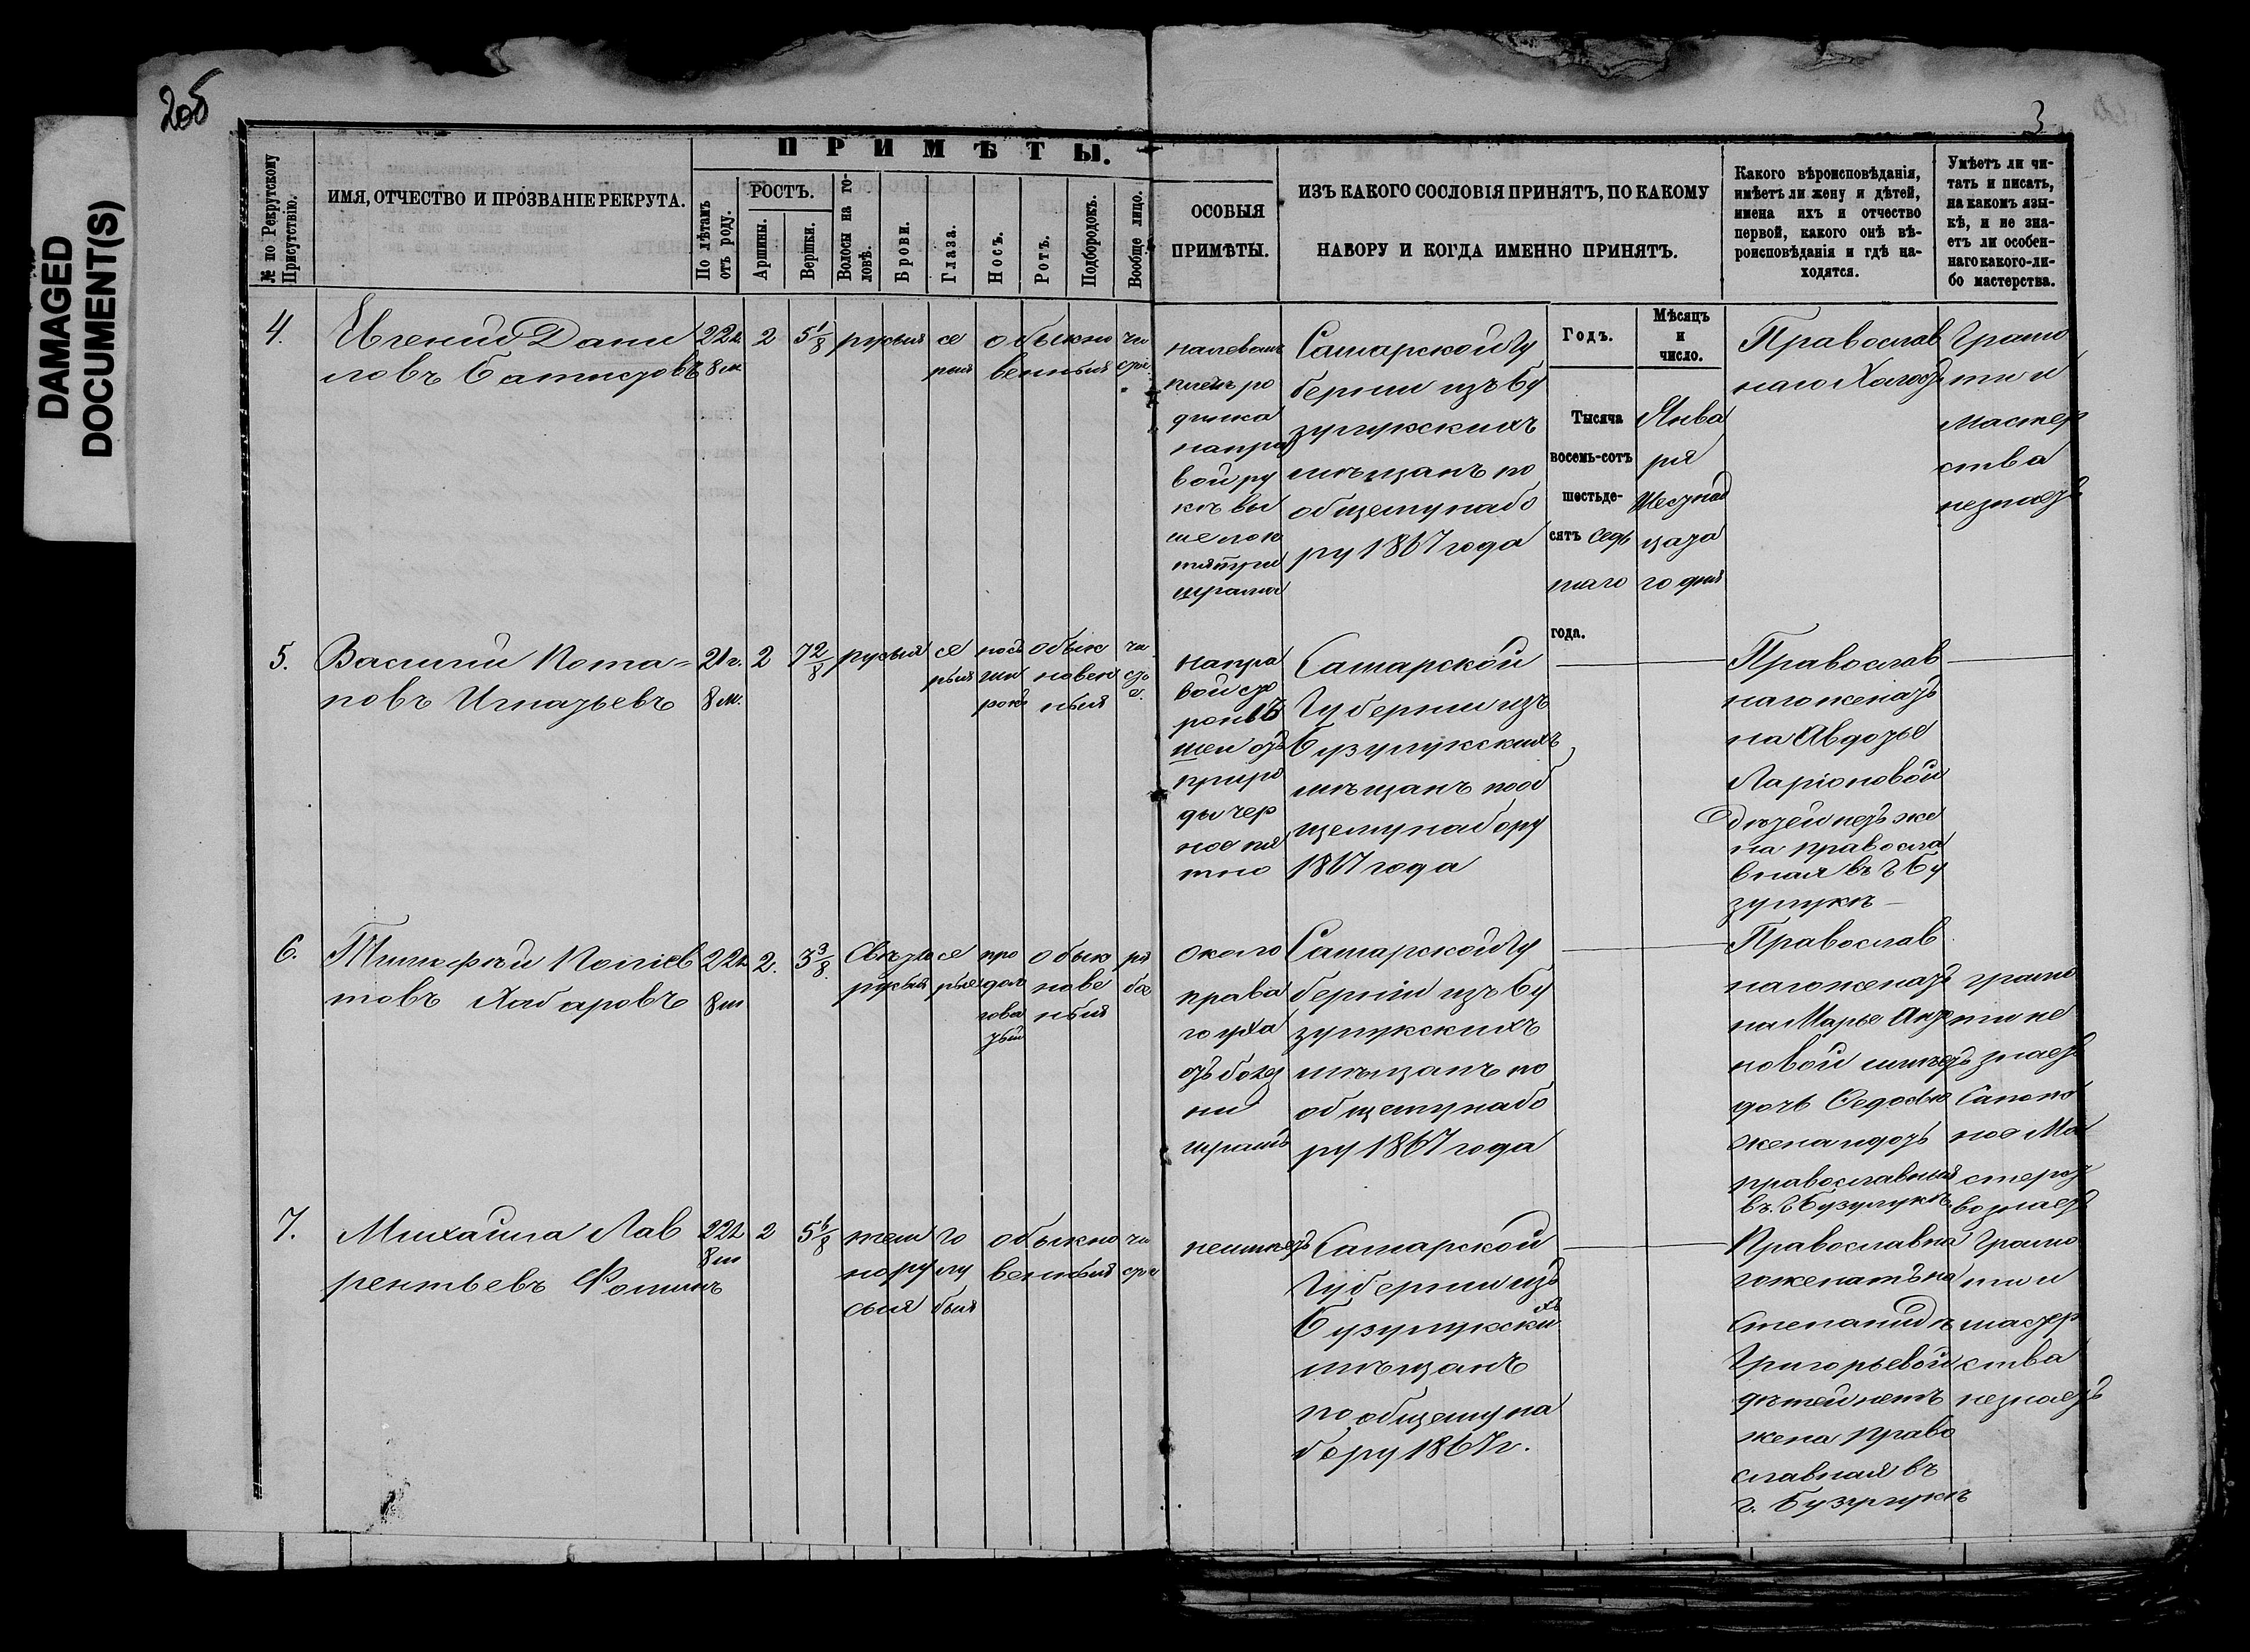 DAMAGED
DOCUMENT(S)
205
3
ПРИМѢТЫ.
№ по Рекрутскому
Присутствію.
ИМЯ, ОТЧЕСТВО И ПРОЗВАНІЕ РЕКРУТА.
По лѣтамъ
отъ роду.
РОСТЪ.
Аршины.
Вершки.
Волосы на го-
ловѣ.
Брови.
Глаза.
Носъ.
Ротъ.
Подбородокъ.
Вообще лицо.
ОСОБЫЯ
ПРИМѢТЫ.
ИЗЪ КАКОГО СОСЛОВІЯ ПРИНЯТЪ, ПО КАКОМУ
НАБОРУ И КОГДА ИМЕННО ПРИНЯТЪ.
Какого вѣроисповѣданія,
имѣетъ ли жену и дѣтей,
имена ихъ и отчество
первой, какого онѣ вѣ-
роисповѣданія и гдѣ на-
ходятся.
Умѣетъ ли чи-
тать и писать,
на какомъ язы-
кѣ, и не зна-
етъ ли особен-
наго какого-ли-
бо мастерства.
4.
Евгеній Дани
ловъ Батистовъ
22л
8м
2
5 1/8
русыя
се
рыя
обыкно
венныя
чи
стое
налевомъ
плечѣ ро
динка
направ
вой ру
кѣ вы
ше лок
тя три
шрама
Самарской Гу
берніи изъ Бу
зулукскихъ
мѣщанъ по
общему набо
ру 1867 года
Годъ.
Тысяча
восемь-сотъ
шестьде-
сятъ седь
маго
года.
Мѣсяцъ
и
число.
Янва
ря
Шестнад
цата
го дня
Православ
наго Холостъ
Грамо
ти и
мастер
ства
незнаетъ
5.
Василій Пота-
повъ Игнатьевъ
21г.
8м.
2
7 2/8
русыя
се
рыя
носъ
ши
рокъ
обык
новен
ныя
чи
сто
е.
на пра
вой сто
ронѣ
шеи отъ
приро
ды чер
ное пя
тно
Самарской
Губерніи изъ
Бузулукскихъ
мѣщанъ пооб
щему набору
1867 года
Православ
наго женатъ
на Авдотье
Ларіоновой
дѣтей нетъ же
на правосла
вная въ г. Бу
зулукѣ
6.
Тимофей
Хабаровъ
22л
8м
2.
3 3/8
Свѣтло
русыя
се
рые
про
дол
гова
тый
обык
нове
ныя
ря
бое
около
права
го уха
отъ болез
ни
шрамъ
Самарской Гу
берніи изъ Бу
зулукскихъ
мѣщанъ по
общему набо
ру 1867 года
Православ
наго женатъ
на Марье
новой имеетъ
дочь Федосью
жена и дочь
православныя
въ г. Бузулукѣ
грамо
ти не
знаетъ
Сапож
ное Ма
стерст
во знаетъ
7.
Михаила Лав
рентьевъ Фоминъ
22л
8м
2
5 6/8
тем
нору
сыя
го
лу
быя
обыкно
венныя
чи
стое
неимеетъ
Самарской
Губерніи изъ
Бузулукскихъ
мѣщанъ
по общему на
бору 1867 г.
Православна
го женатъ на
Степанидѣ
Григорьевой
дѣтей нетъ
жена право
славная въ
г. Бузулукѣ
Грамо
ти и
мастер
ства
незнаетъ